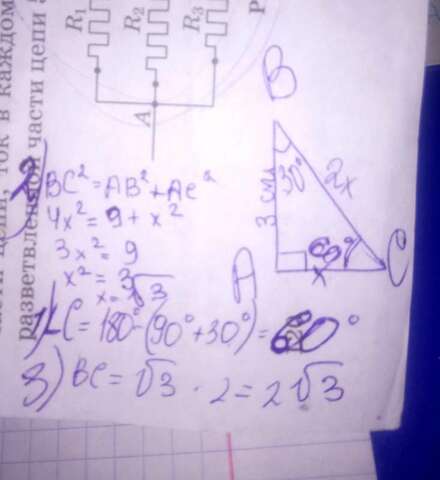 R₁
R₂
R₃
A
ток в каждом
разветвлённой части цепи
B
30°
2x
3 см
60°
A
x
C
2) BC² = AB² + AC²
4x² = 9 + x²
3x² = 9
x² = 3
x = √3
1) ∠C = 180° - (90° + 30°) = 60°
3) BC = √3 · 2 = 2√3